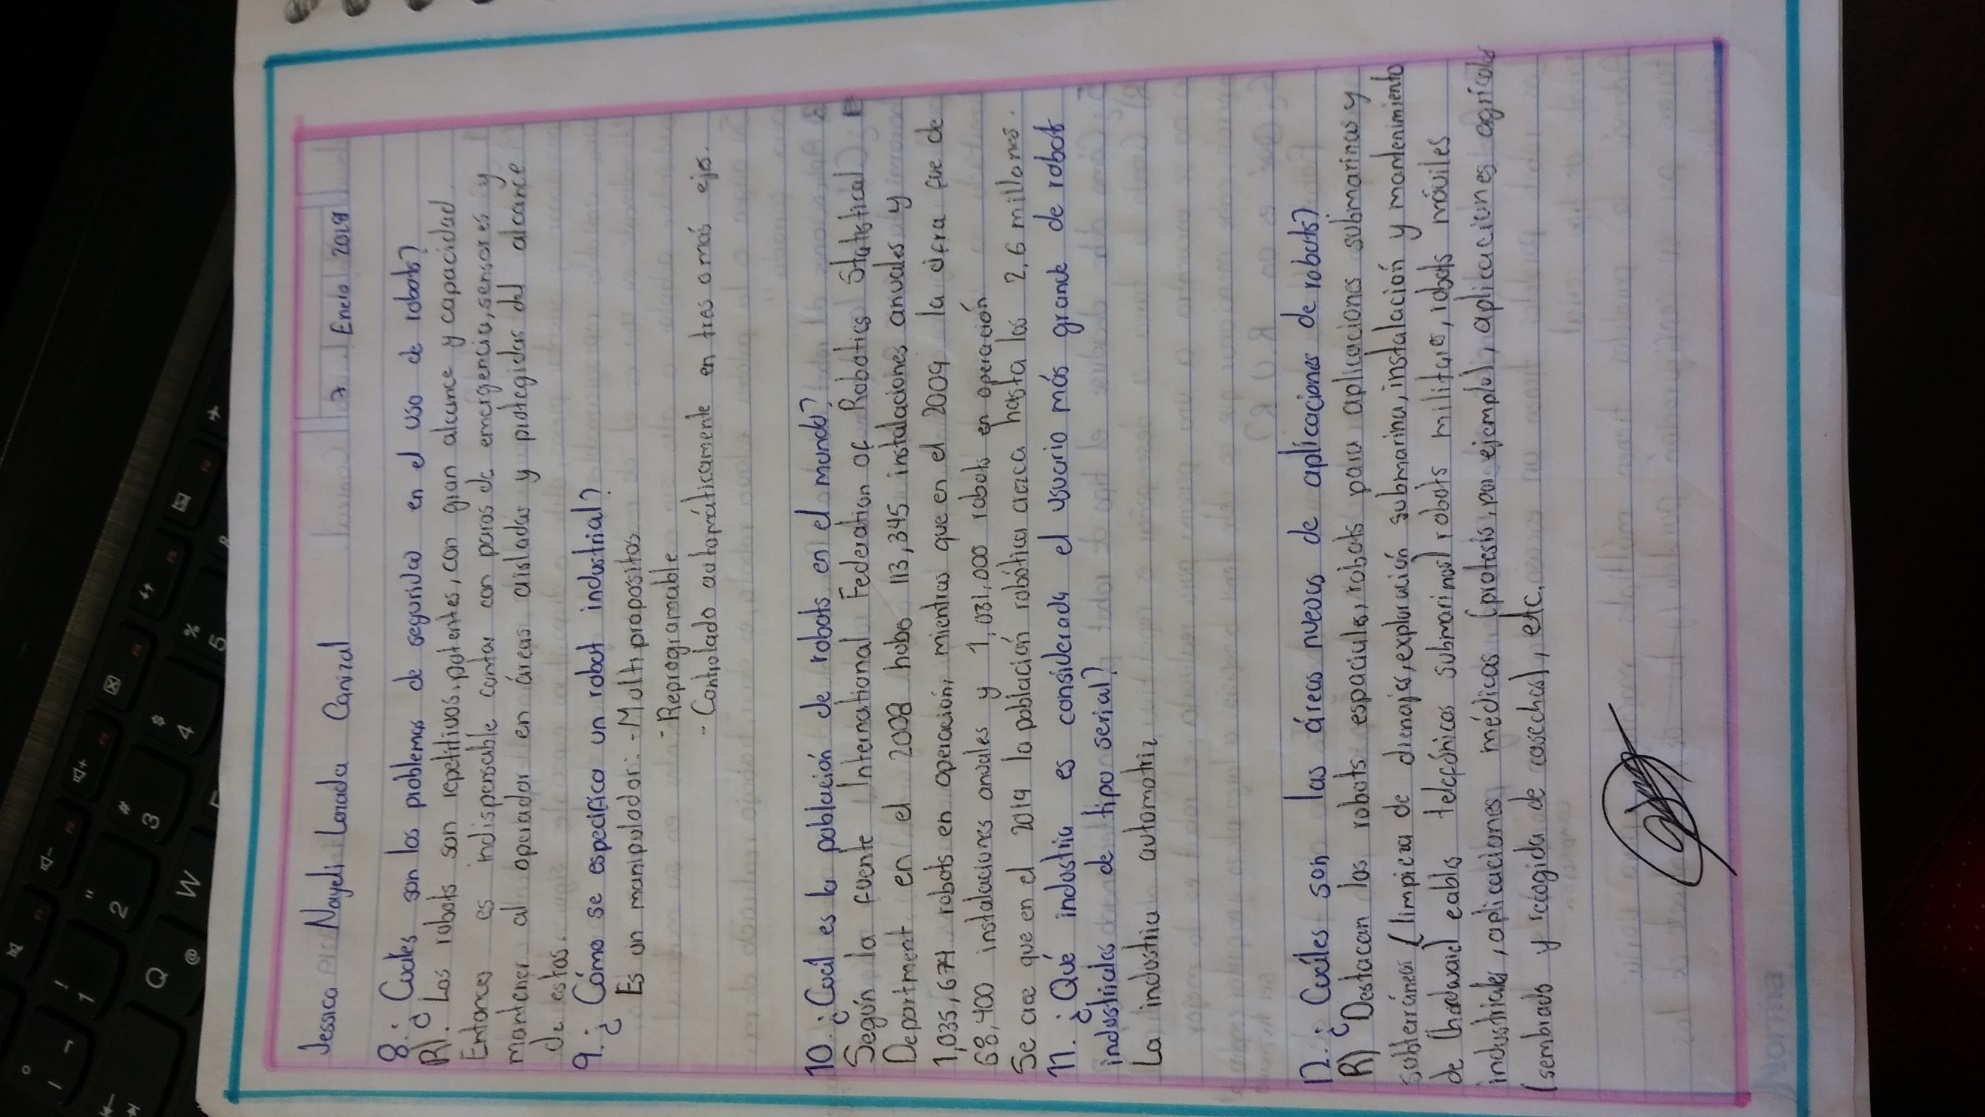 Jessica Nayeli Lozada Canizal
7 Enero 2019
8.- ¿Cuales son los problemas de seguridad en el uso de robots?
R). Los robots son repetitivos, potentes, con gran alcance y capacidad
Entonces es indispensable contar con paros de emergencia, sensores y
mantener al operador en áreas aisladas y protegidas del alcance
de estos.
9.- ¿Cómo se especifica un robot industrial?
Es un manipulador: - Multipropositos
- Reprogramable
- Controlado automáticamente en tres o más ejes.
10.- ¿Cuál es la población de robots en el mundo?
Según la fuente International Federation of Robotics Statistical
Department en el 2008 hubo 113,345 instalaciones anuales y
1,035,674 robots en operación, mientras que en el 2009 la cifra fue de
68,400 instalaciones anuales y 1,031,000 robots en operación
Se cree que en el 2019 la población robótica crezca hasta los 2,6 millones.
11.- ¿Qué industria es considerada el usuario más grande de robot
industriales de tipo serial?
La industria automotriz
12.- ¿Cuáles son las áreas nuevas de aplicaciones de robots?
R) Destacan los robots espaciales, robots para aplicaciones submarinas y
subterráneas (limpieza de drenajes, exploración submarina, instalación y mantenimiento
de (hardward cables telefónicos submarinos) robots militares, robots móviles
industriales, aplicaciones médicas (protesis, por ejemplo), aplicaciones agrícolas
(sembrado y recogida de cosechas), etc.
Norma
° ! " # $ %
¬ 1 2 3 4 5
Q @ W